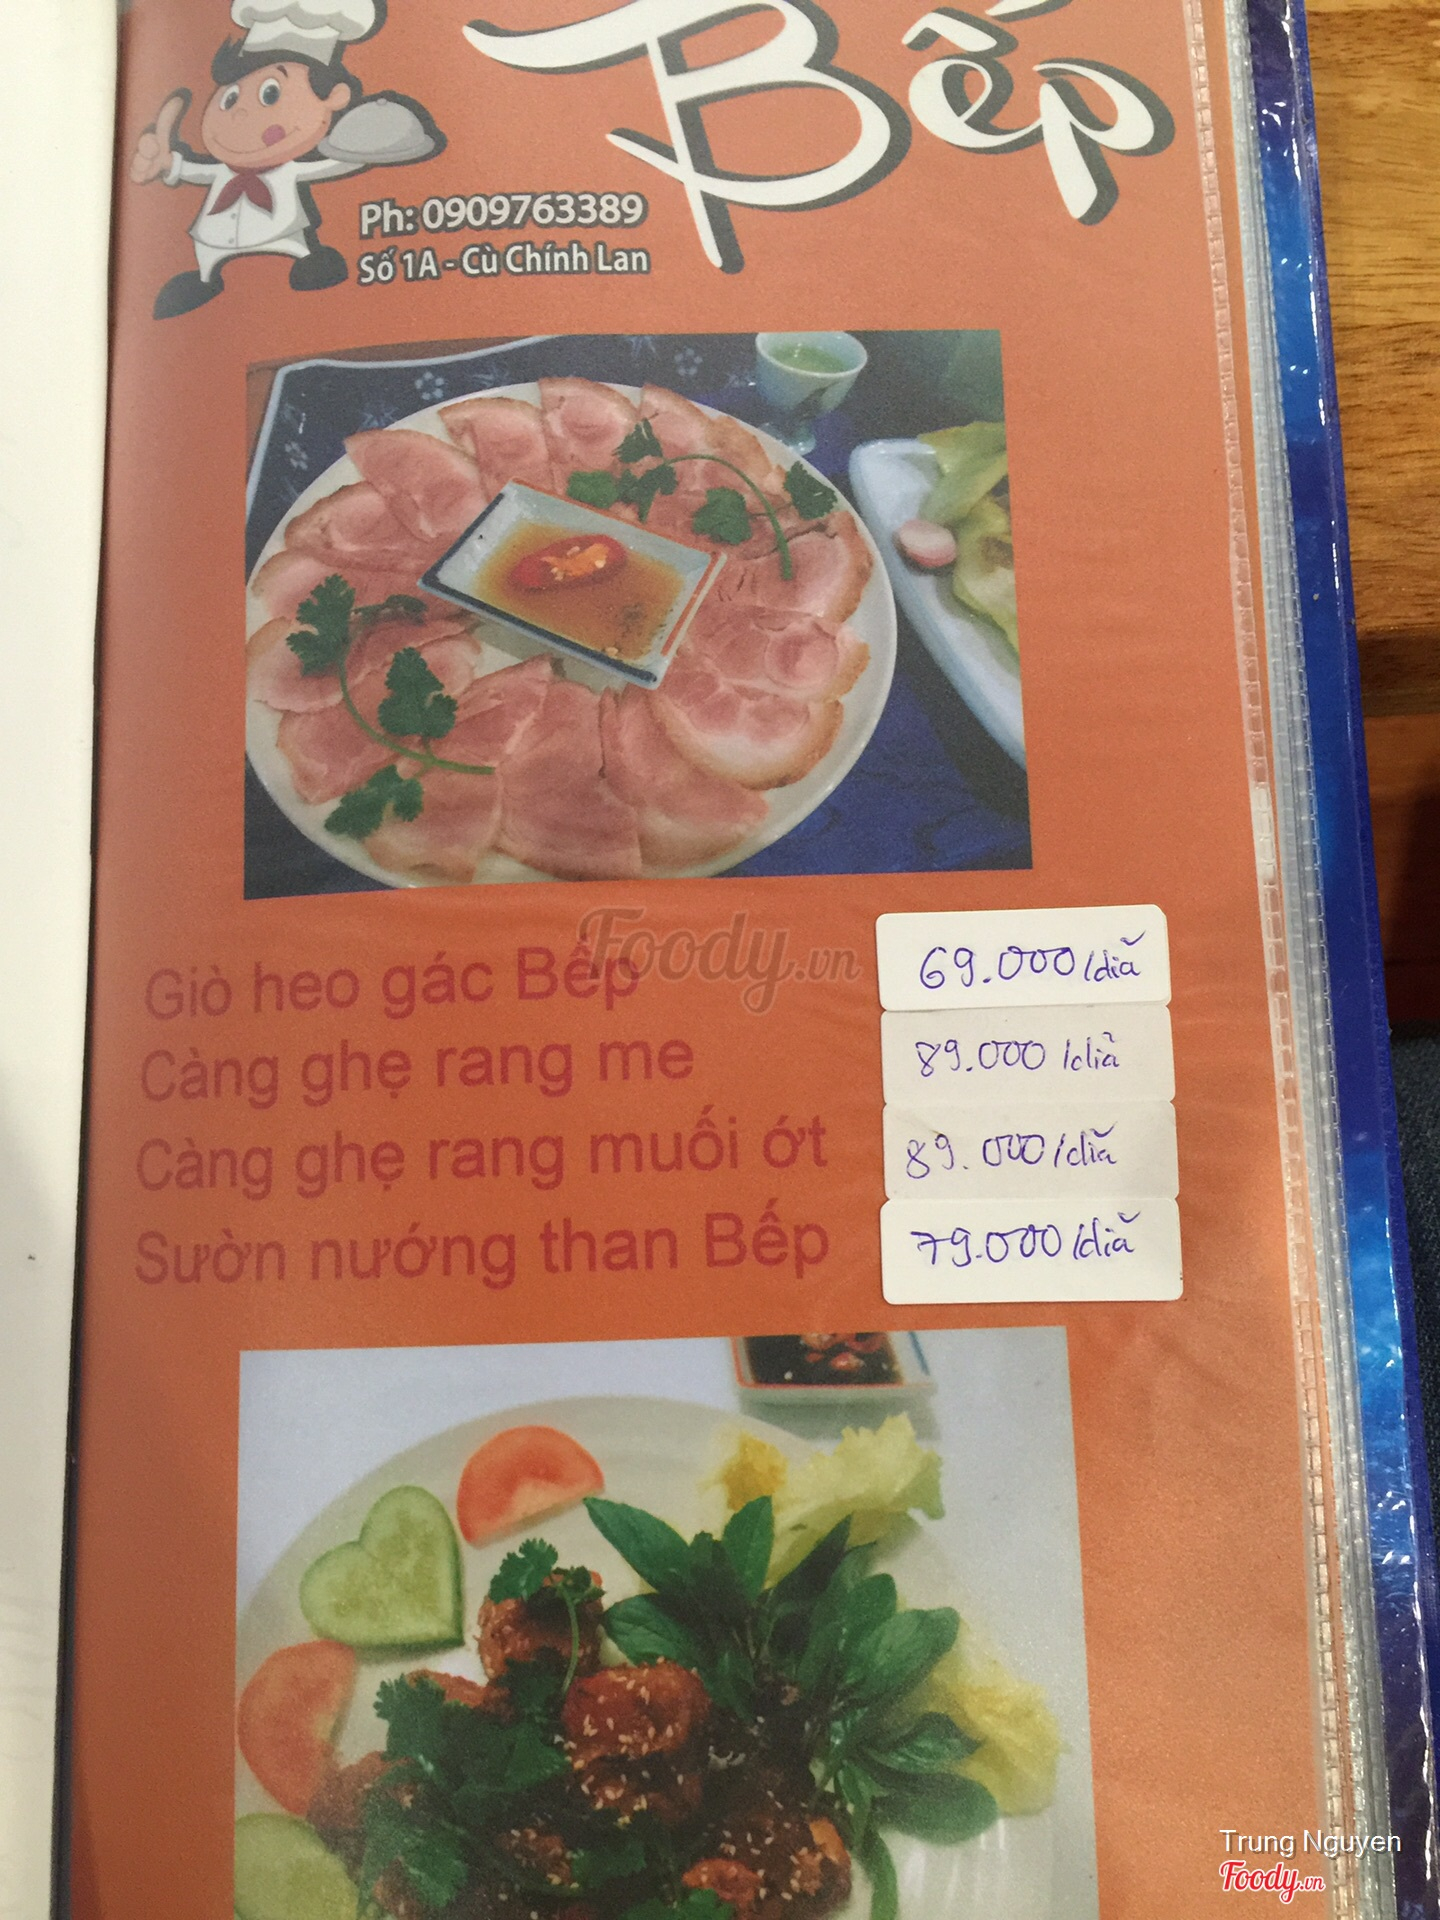 Bếp
Ph: 0909763389
Số 1A - Cù Chính Lan
Foody.vn
Giò heo gác Bếp 69.000/dĩa
Càng ghẹ rang me 89.000/dĩa
Càng ghẹ rang muối ớt 89.000/dĩa
Sườn nướng than Bếp 79.000/dĩa
Trung Nguyen
Foody.vn